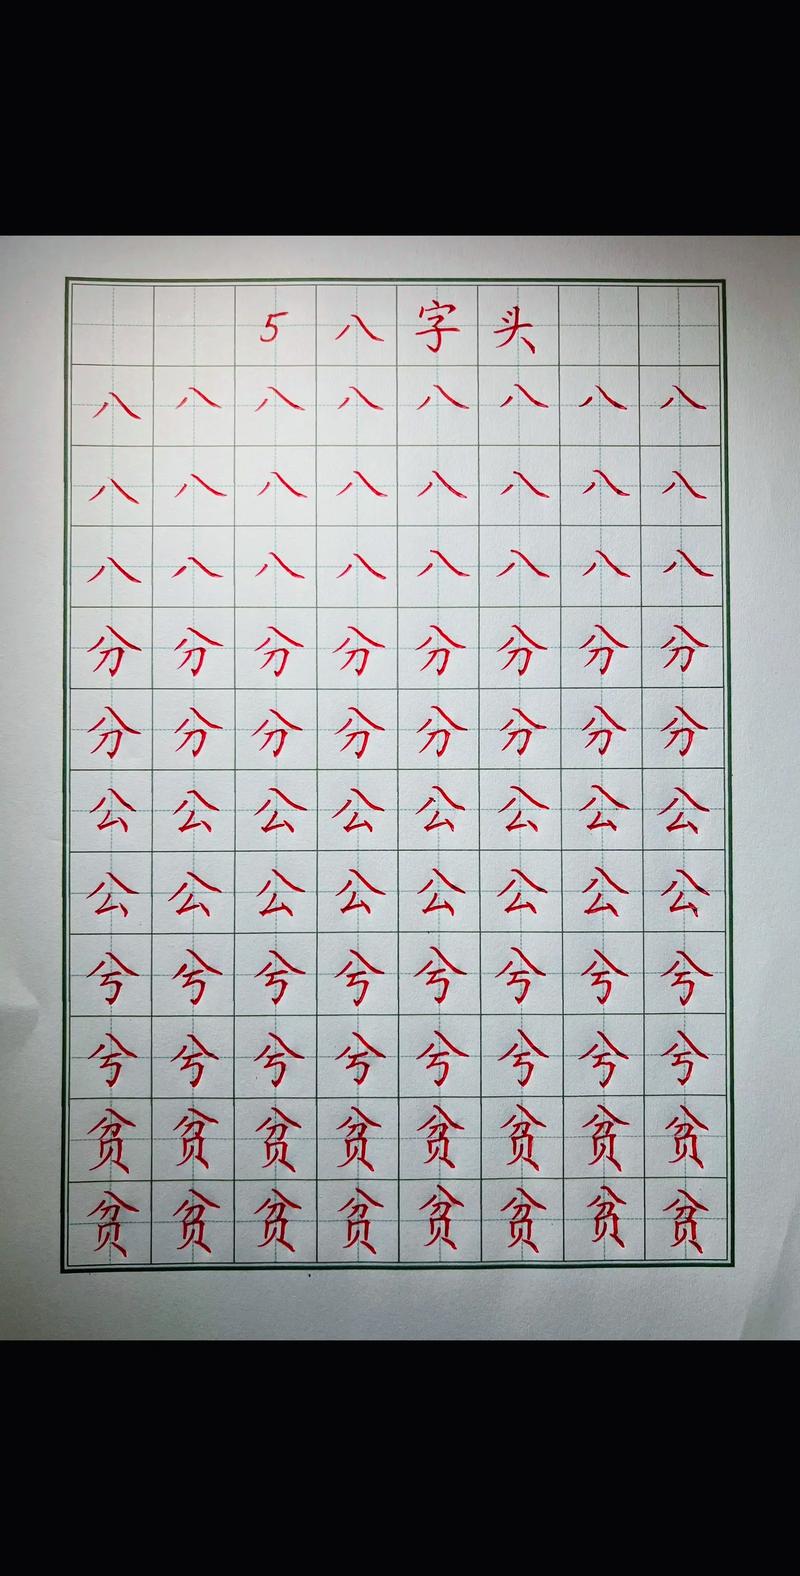 5八字头
八八八八八八八八
八八八八八八八八
八八八八八八八八
分分分分分分分分
分分分分分分分分
公公公公公公公公
公公公公公公公公
兮兮兮兮兮兮兮兮
兮兮兮兮兮兮兮兮
贫贫贫贫贫贫贫贫
贫贫贫贫贫贫贫贫